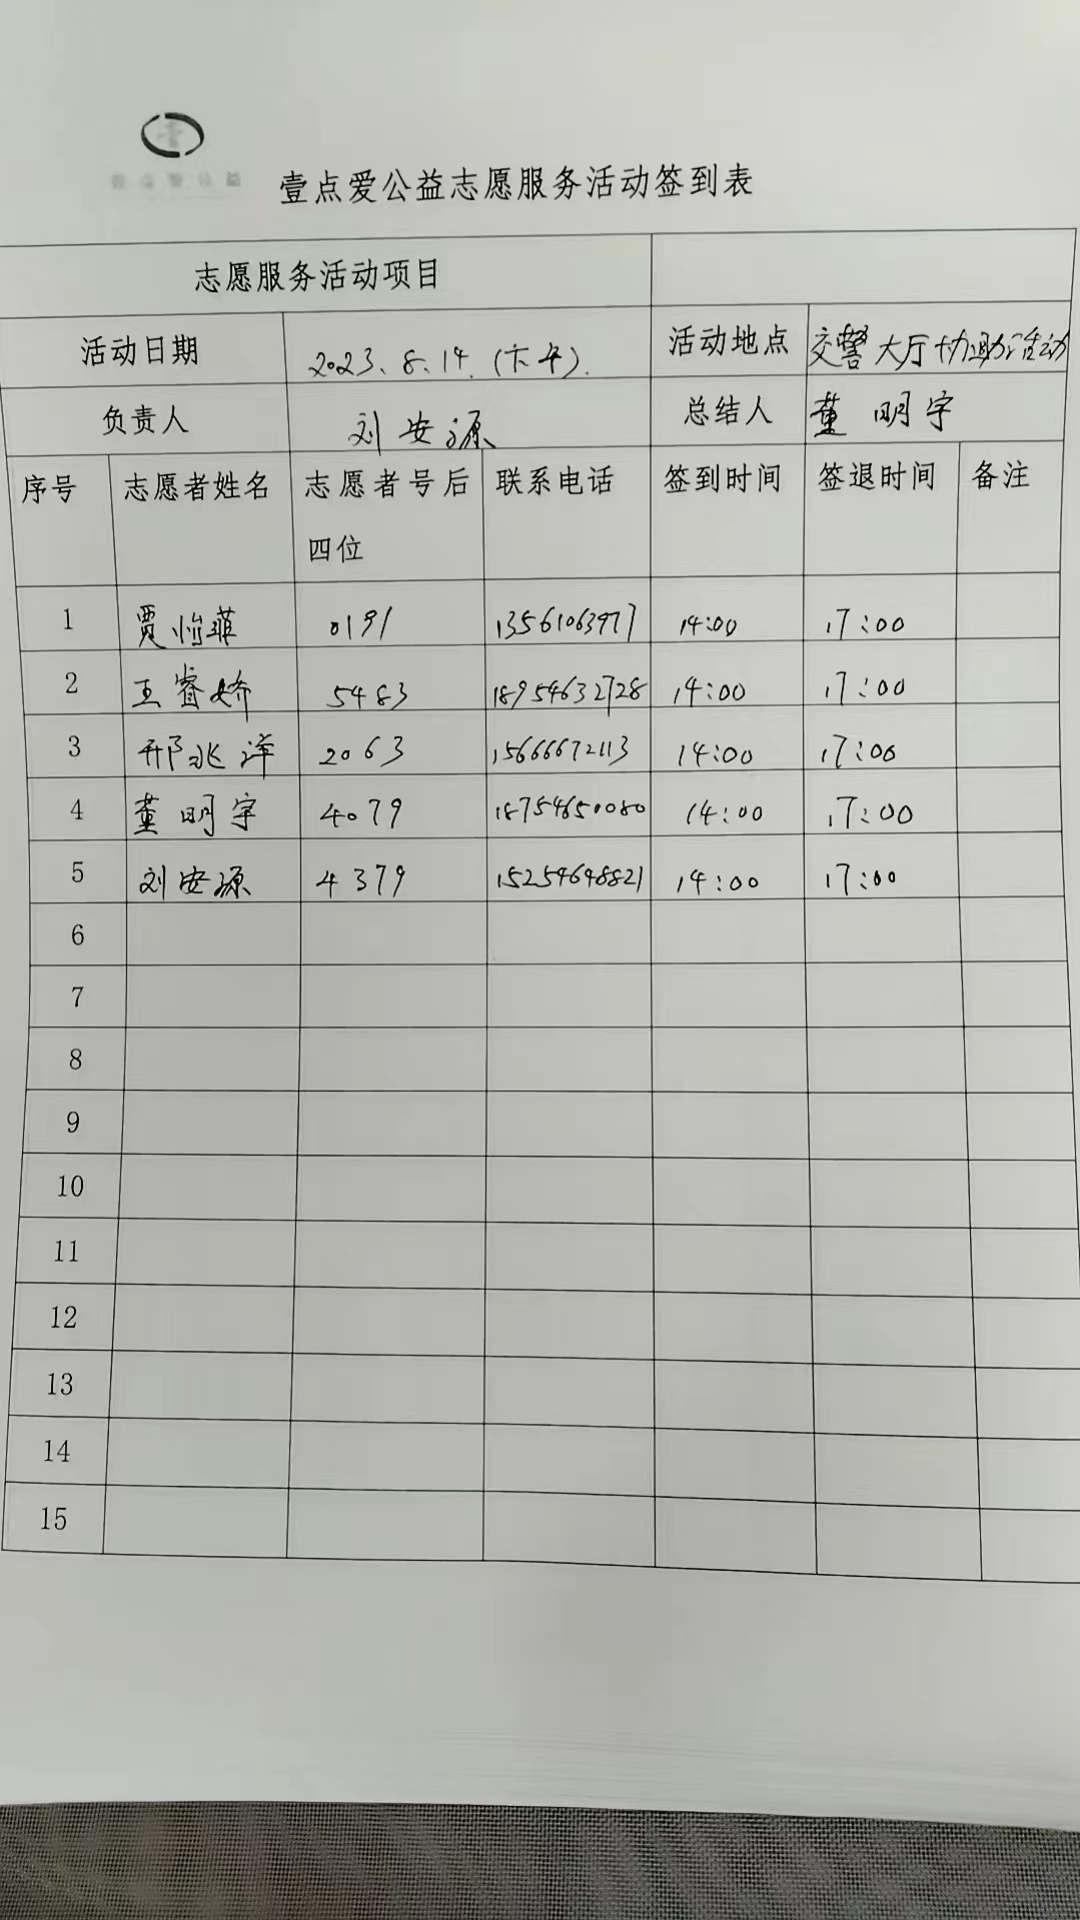 壹点爱公益
壹点爱公益志愿服务活动签到表
志愿服务活动项目
活动日期 2023.8.14.(下午). 活动地点 交警大厅协助活动
负责人 刘安源 总结人 董明宇
序号 志愿者姓名 志愿者号后四位 联系电话 签到时间 签退时间 备注
1 贾怡菲 0191 13561063977 14:00 17:00
2 王睿娇 5483 18954632728 14:00 17:00
3 邢兆洋 2063 15666672113 14:00 17:00
4 董明宇 4079 18754650080 14:00 17:00
5 刘安源 4379 15254648821 14:00 17:00
6
7
8
9
10
11
12
13
14
15